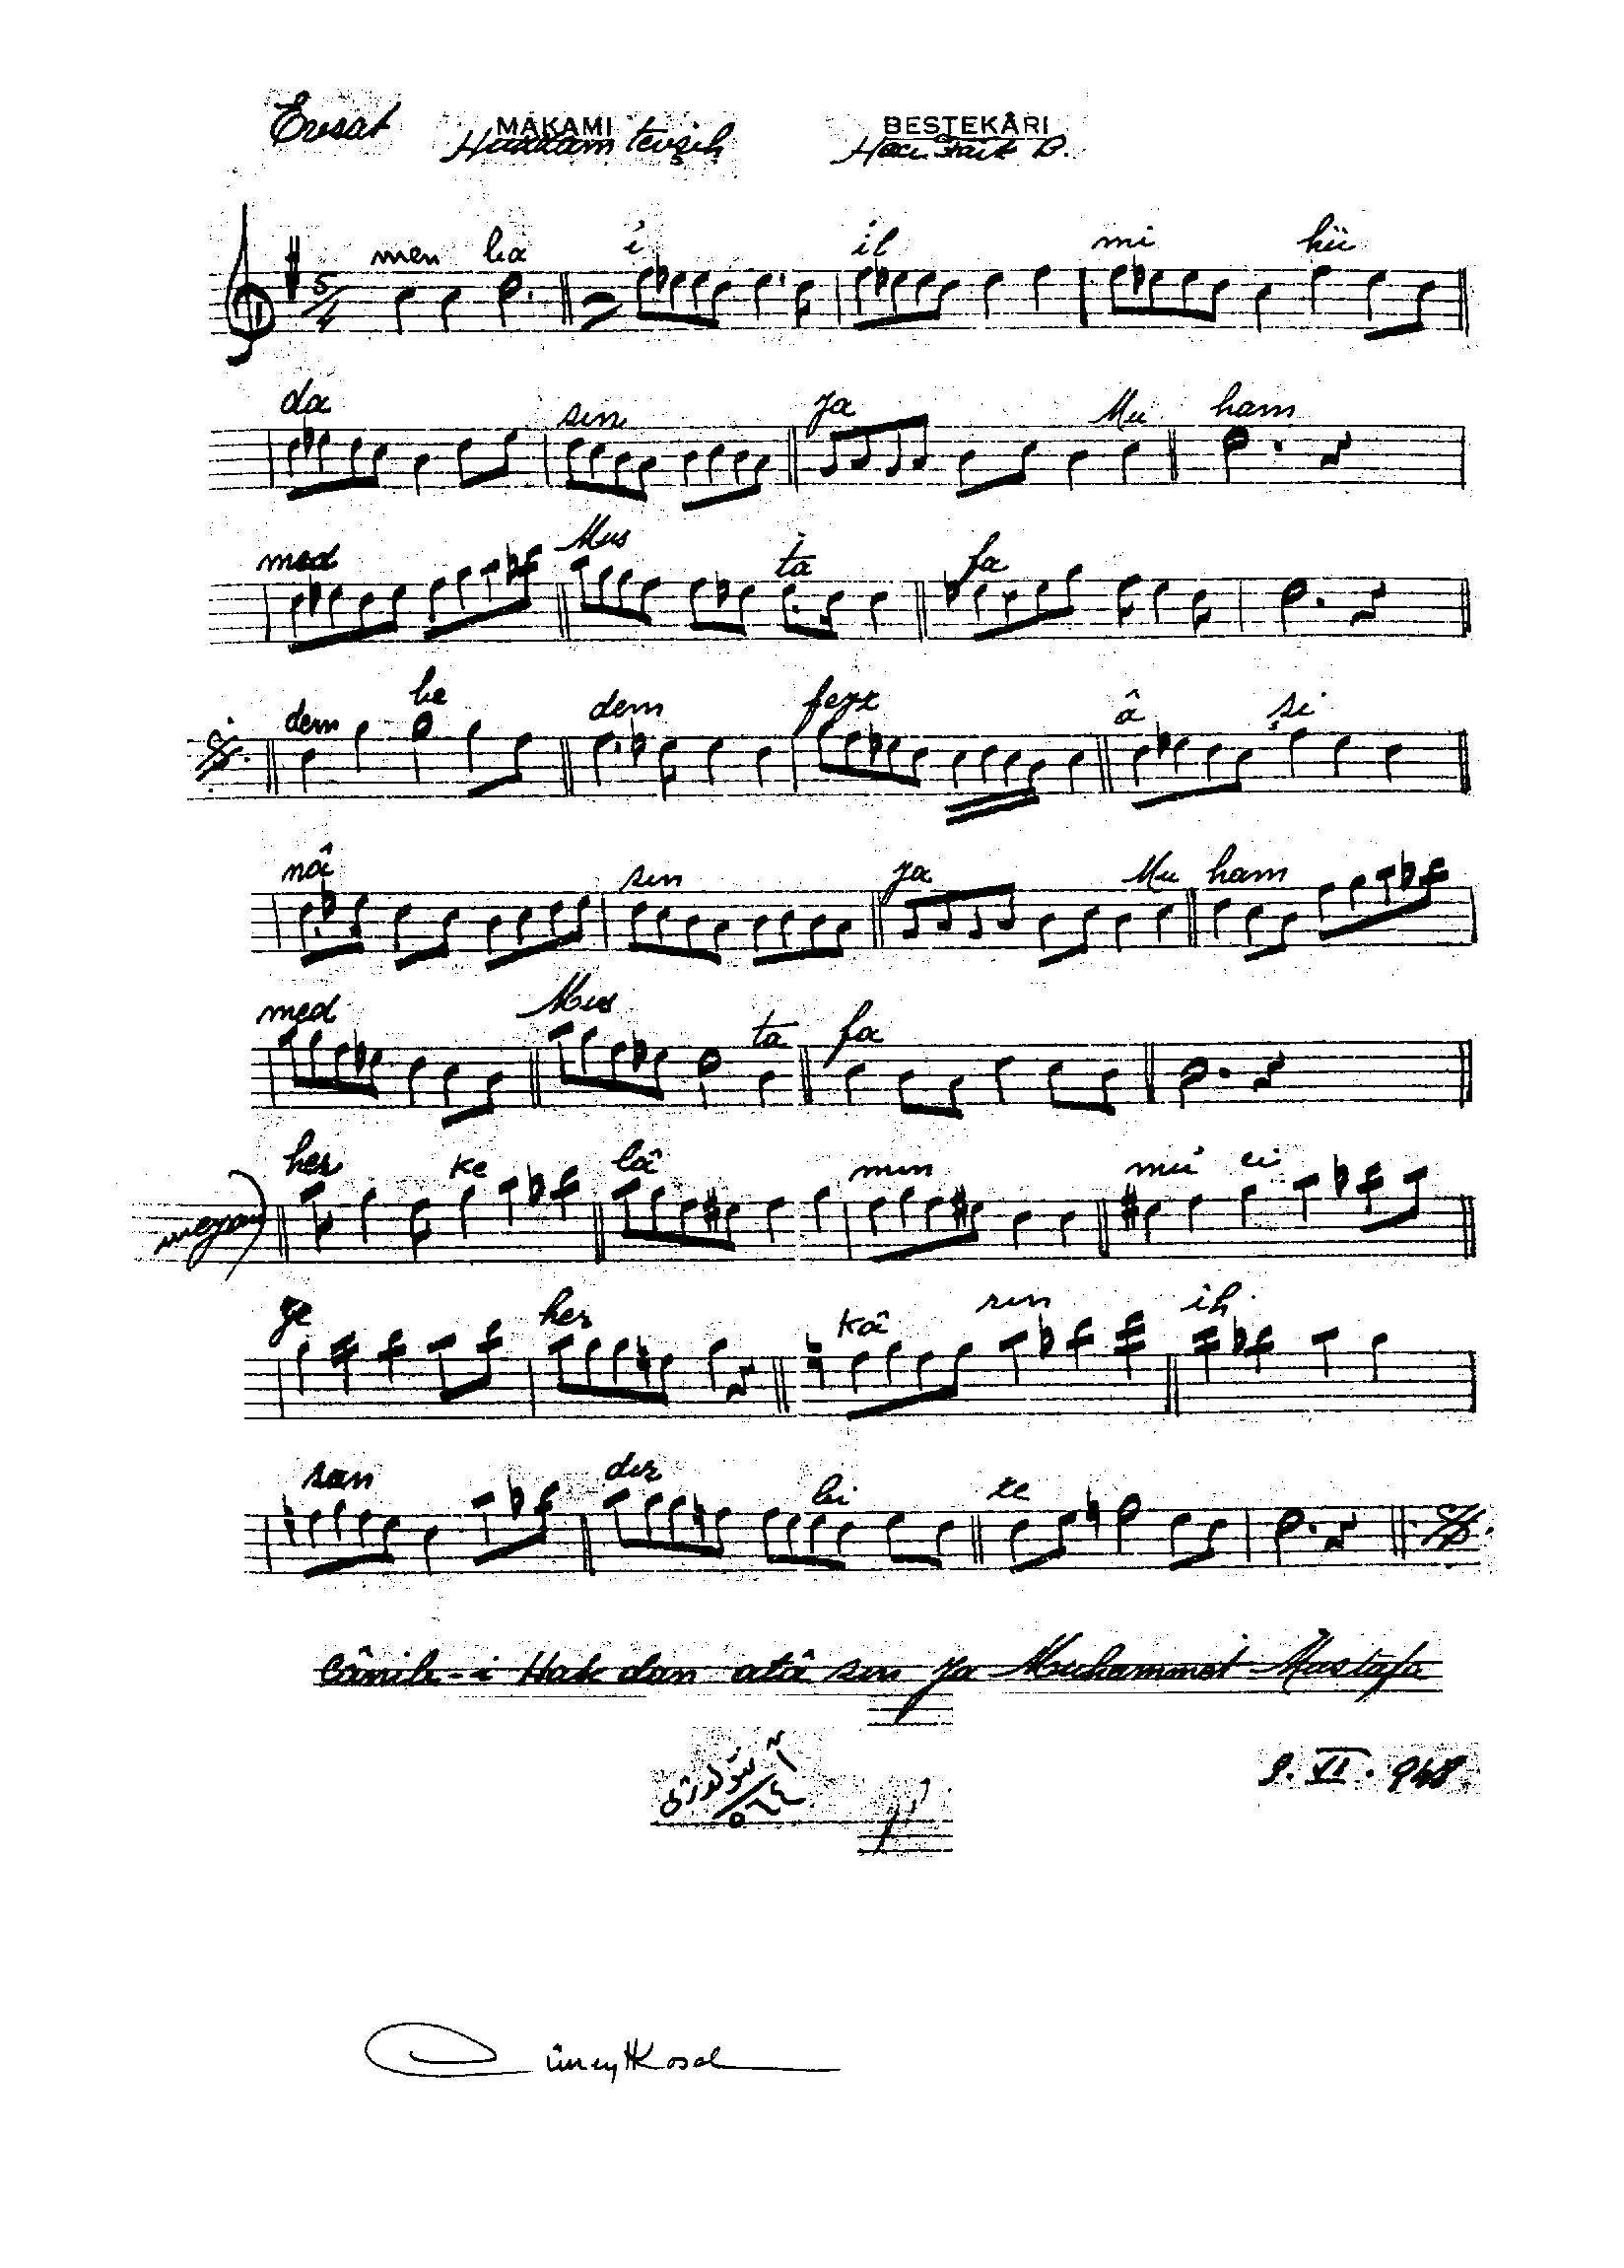 Evsat MAKAMI BESTEKÂRI
Hüzzam tevşih Hacı Faik B.
5/4 men ba i il mi hü
da sın ya Mu ham
med Mus ta fa
dem be dem feyz â şi
nâ sın ya Mu ham
med Mus ta fa
meyan her ke lâ mın mû ci
ze her kâ rın ih
san dır bi ze
Cânib-i Hak dan atâ sın ya Muhammed Mustafa
9. VI. 948
Cüneyt Kosal